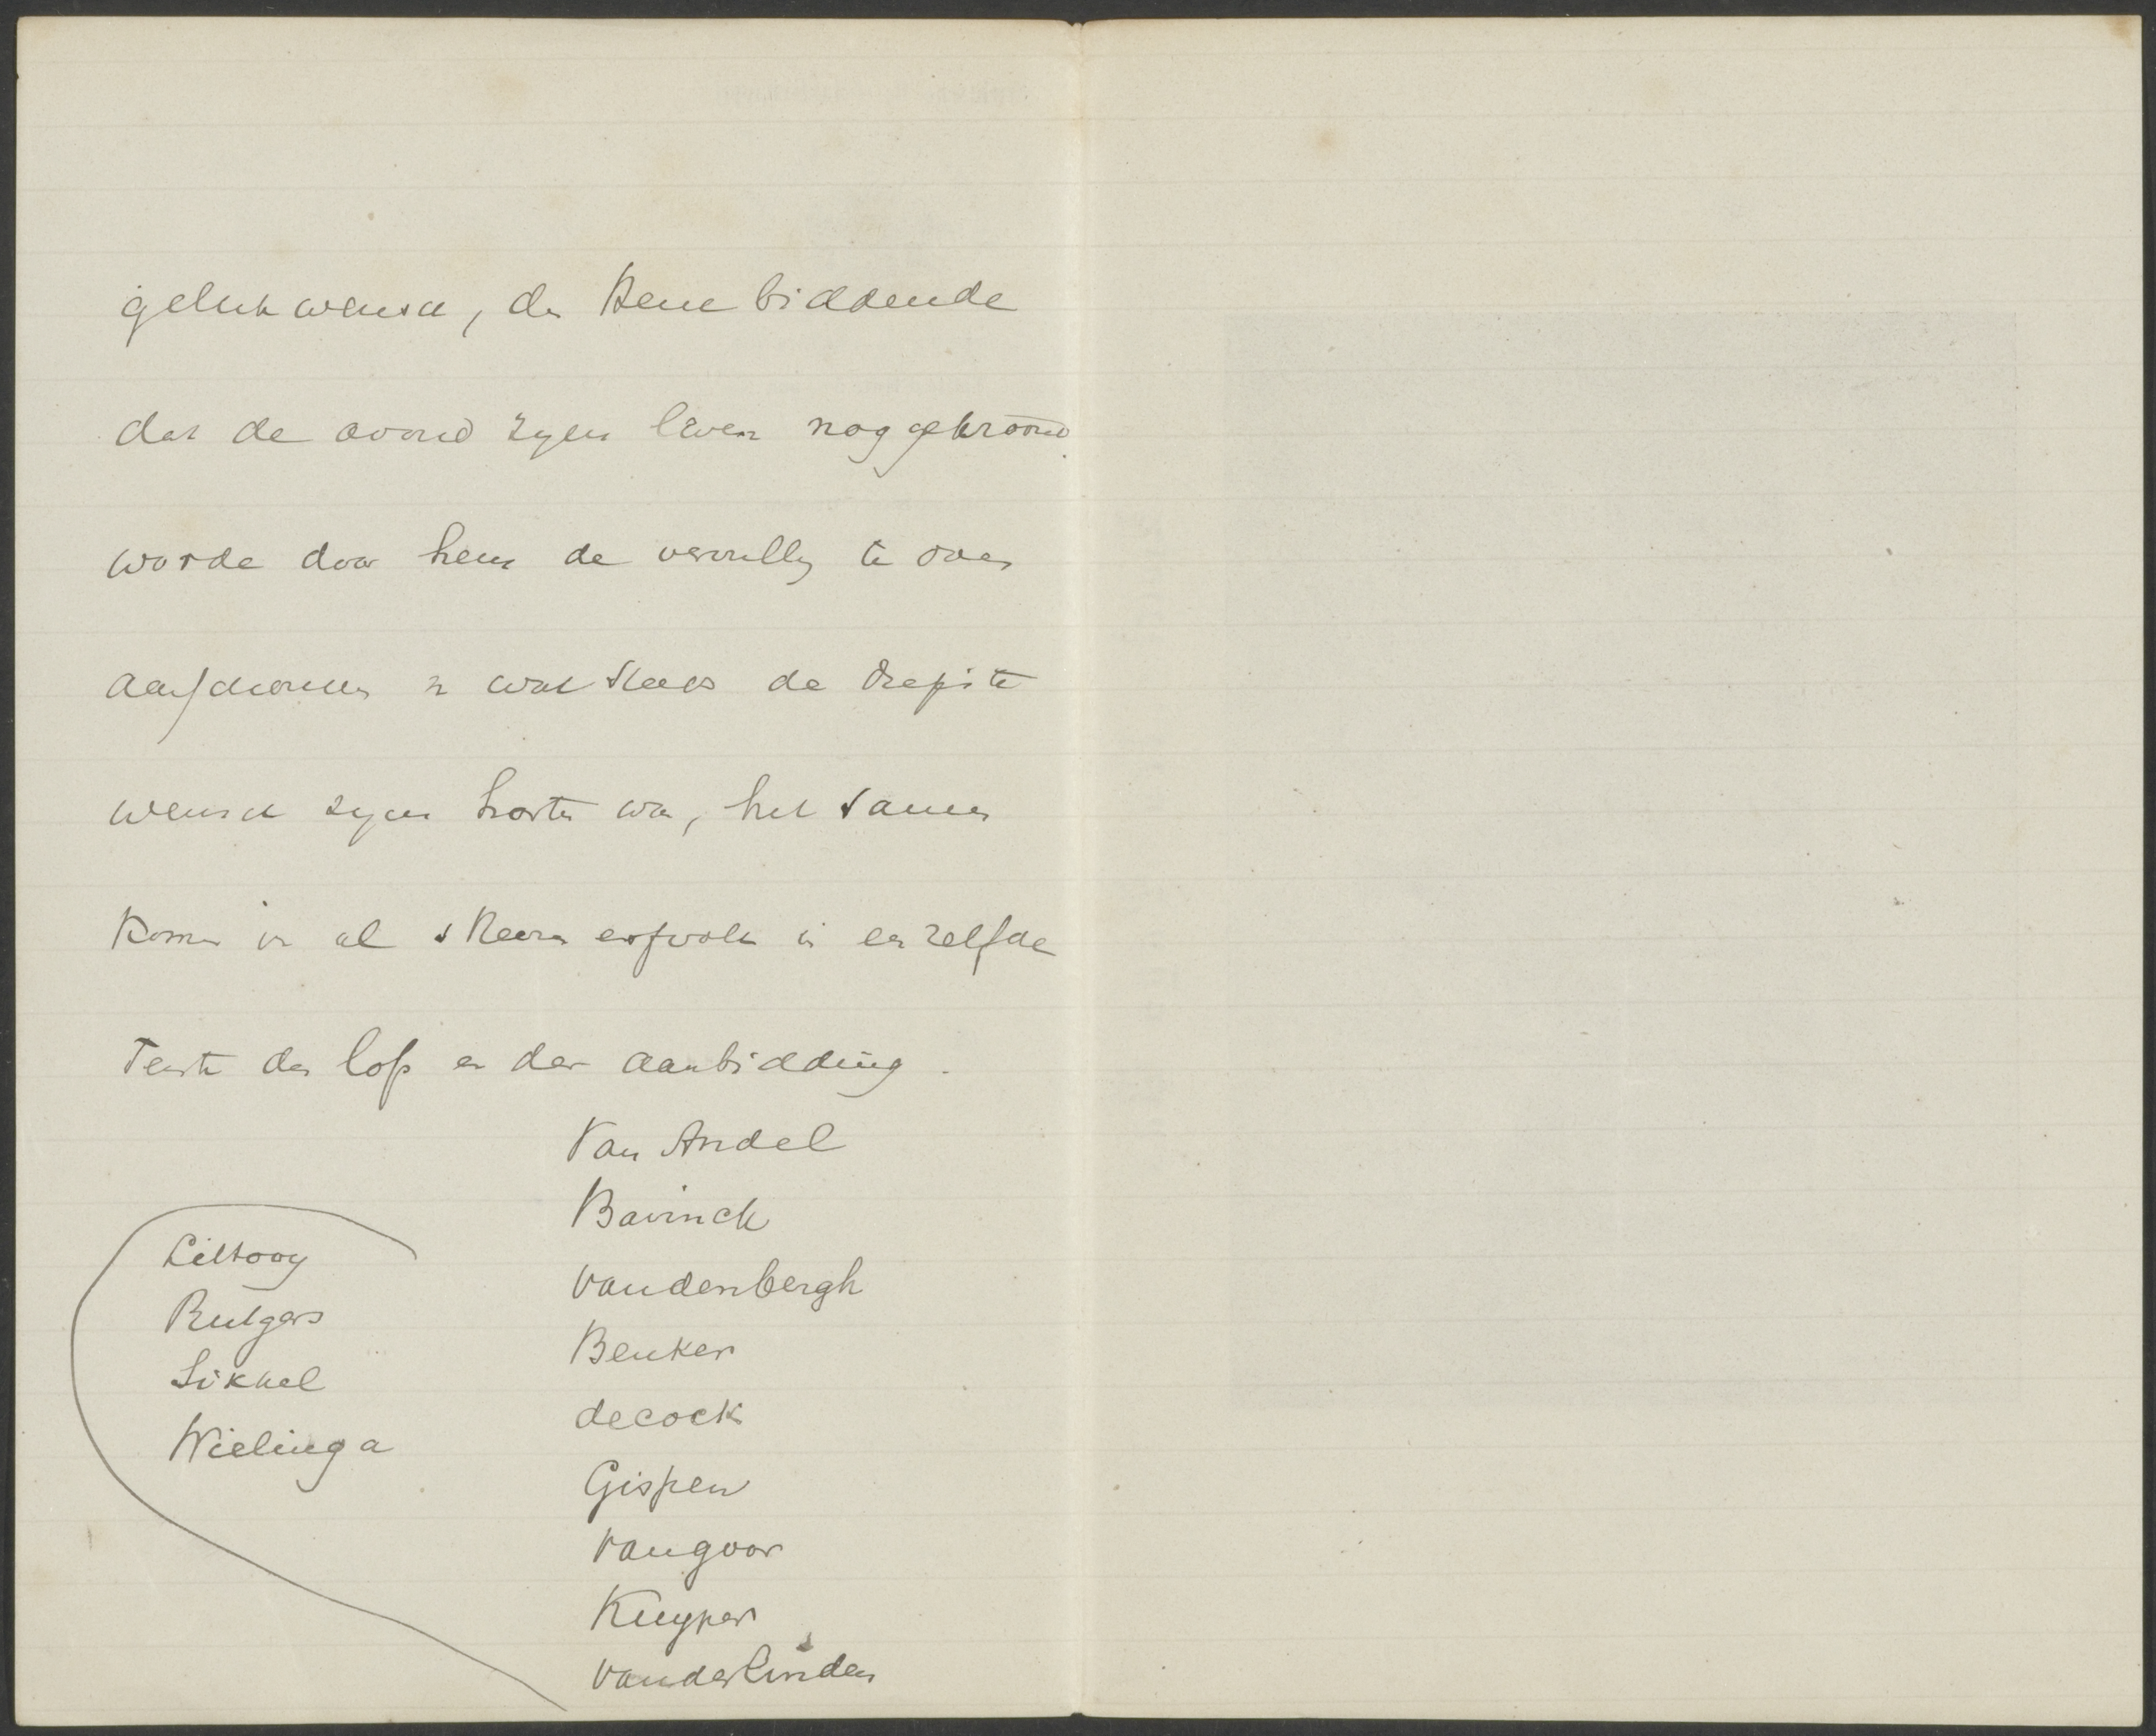 gelukwensch, den Heere biddende
dat de avond zijns levens nog gekroond
worde door hem de vervulling te doen
aanschouwen van wat steeds de diepste
wensch zijns harten was, het samen
komen van al s Heeren erfvolk in en zelfde
Tente des lofs en der aanbidding.
Van Andel
Bavinck
Vandenbergh
Beuker
decock
Gispen
vangoor
Kuyper
vanderLinden
Littooy
Rutgers
Sikkel
Wielinga